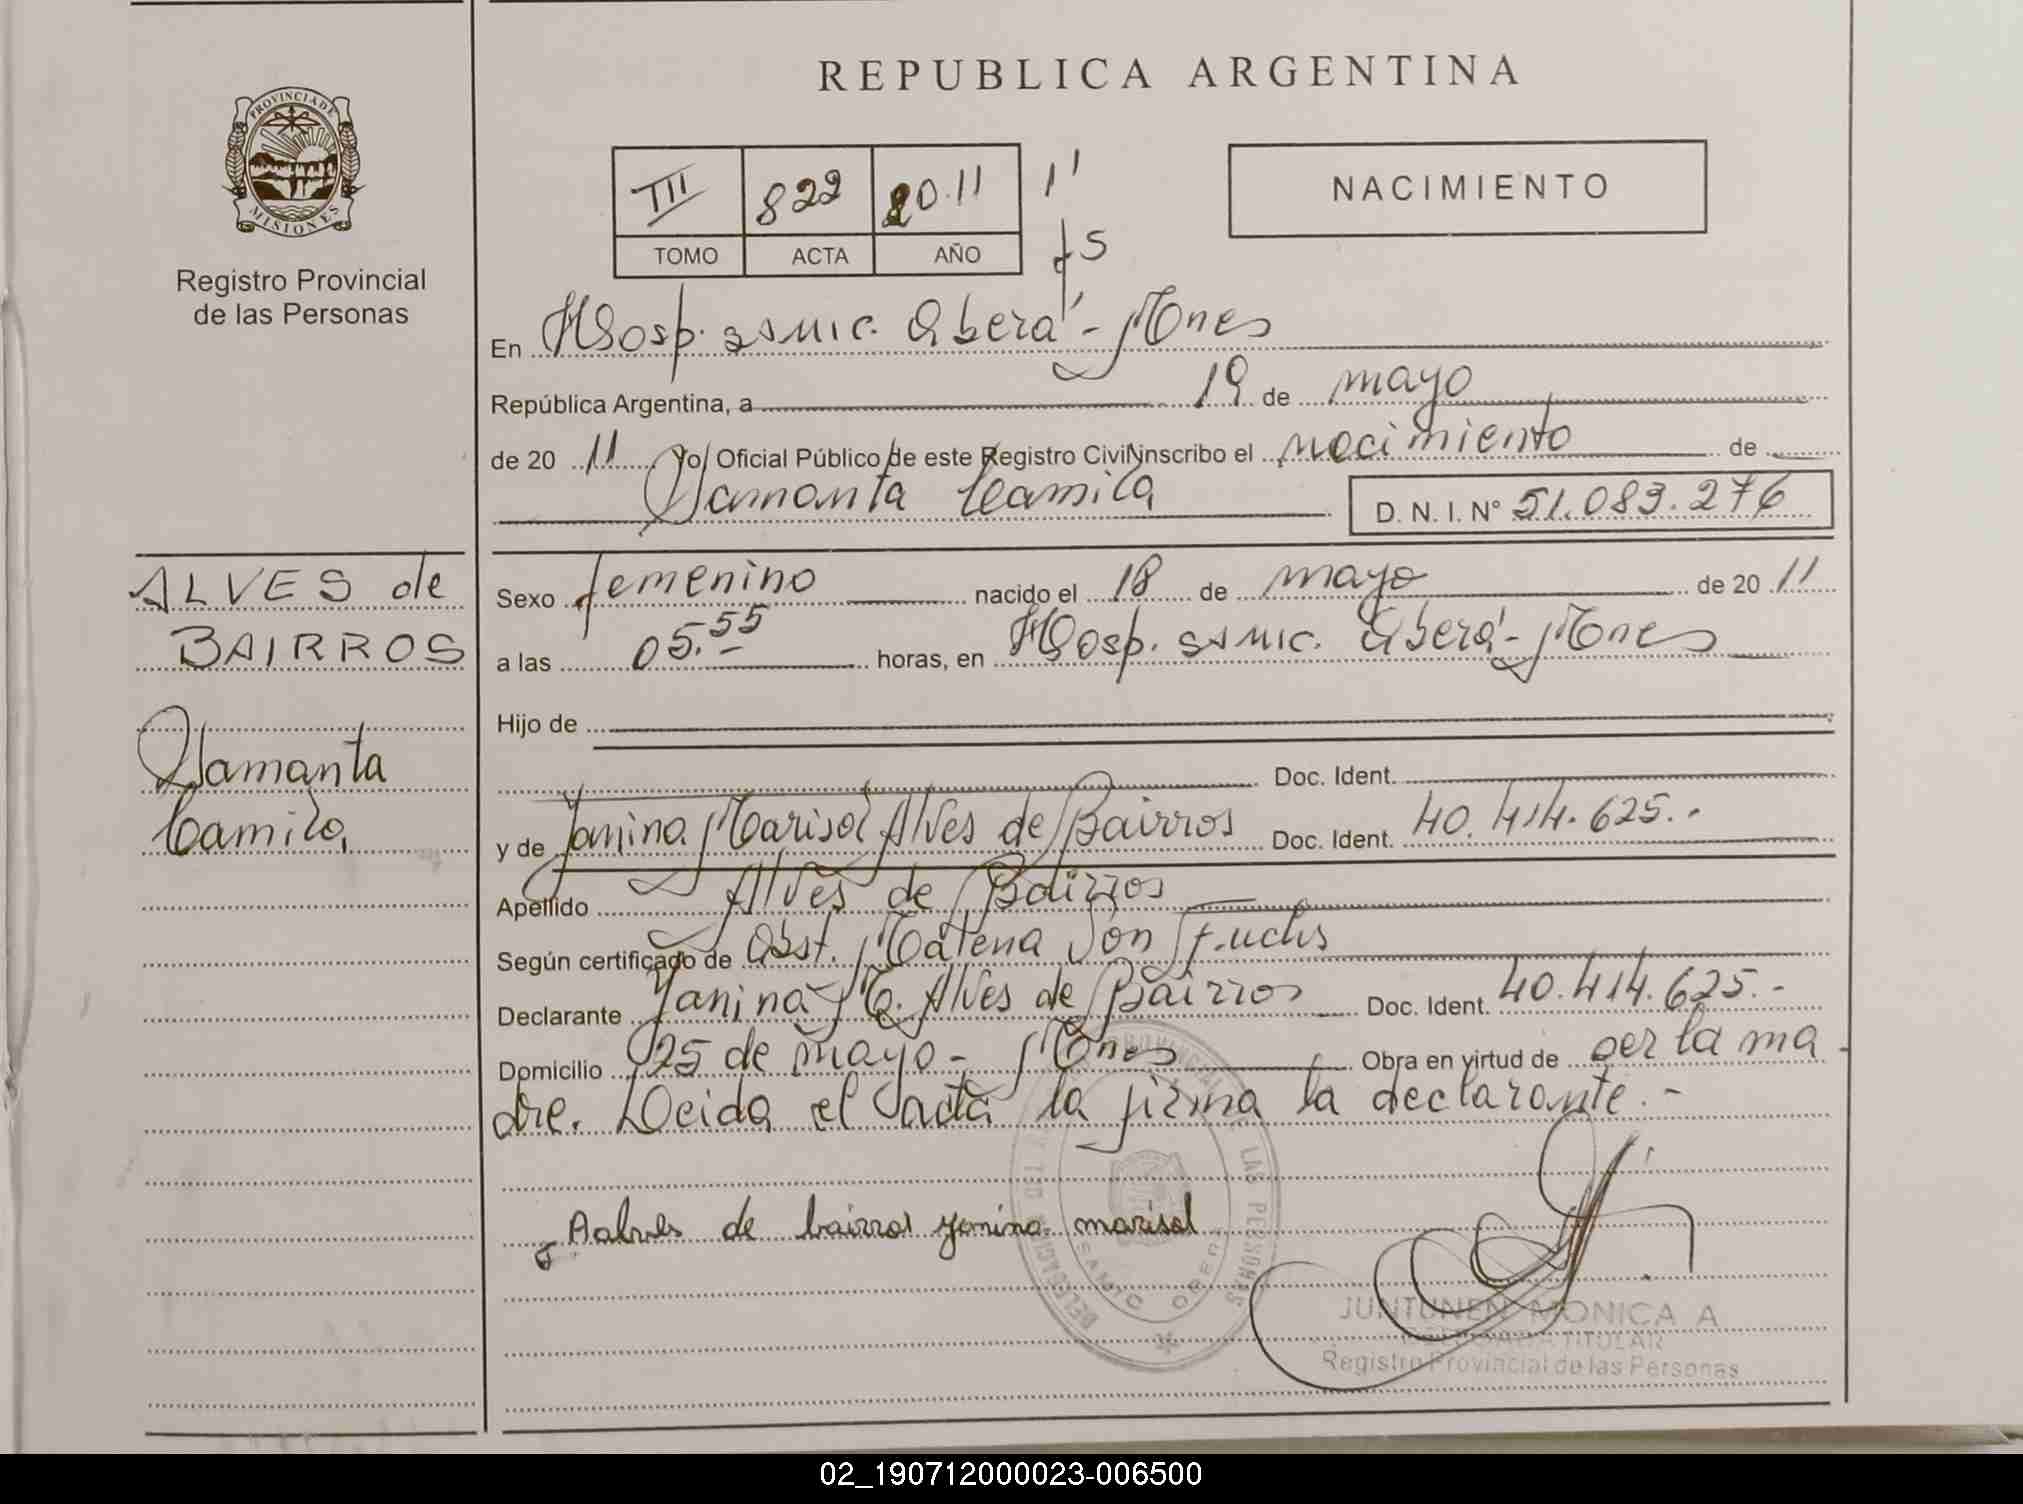 REPUBLICA ARGENTINA
PROVINCIA DE
MISIONES
Registro Provincial
de las Personas
III 822 2011 1'
TOMO ACTA AÑO
NACIMIENTO
En Hosp. SAMIC. Oberá - Mnes
República Argentina, a 19 de mayo
de 20 11 Yo, Oficial Público de este Registro Civil inscribo el nacimiento de
Yamanta Camila D. N. I. N° 51.083.276
ALVES de
BAIRROS
Yamanta
Camila
Sexo femenino nacido el 18 de mayo de 20 11
a las 05.55 horas, en Hosp. SAMIC. Oberá - Mnes
Hijo de
Doc. Ident.
y de Yanina Marisol Alves de Bairros Doc. Ident. 40.414.625.-
Apellido Alves de Bairros
Según certificado de Obst. Malena Von Fuchs
Declarante Yanina M. Alves de Bairros Doc. Ident. 40.414.625.-
Domicilio 25 de mayo - Mnes Obra en virtud de ser la ma
dre. Leida el acta la firma la declarante.-
Aalves de bairros yanina marisol
DELEGACION
PROVINCIAL DE LAS PERSONAS
SAMIC OBERA
JUNTUNEN MONICA A
DELEGADA TITULAR
Registro Provincial de las Personas
02_190712000023-006500